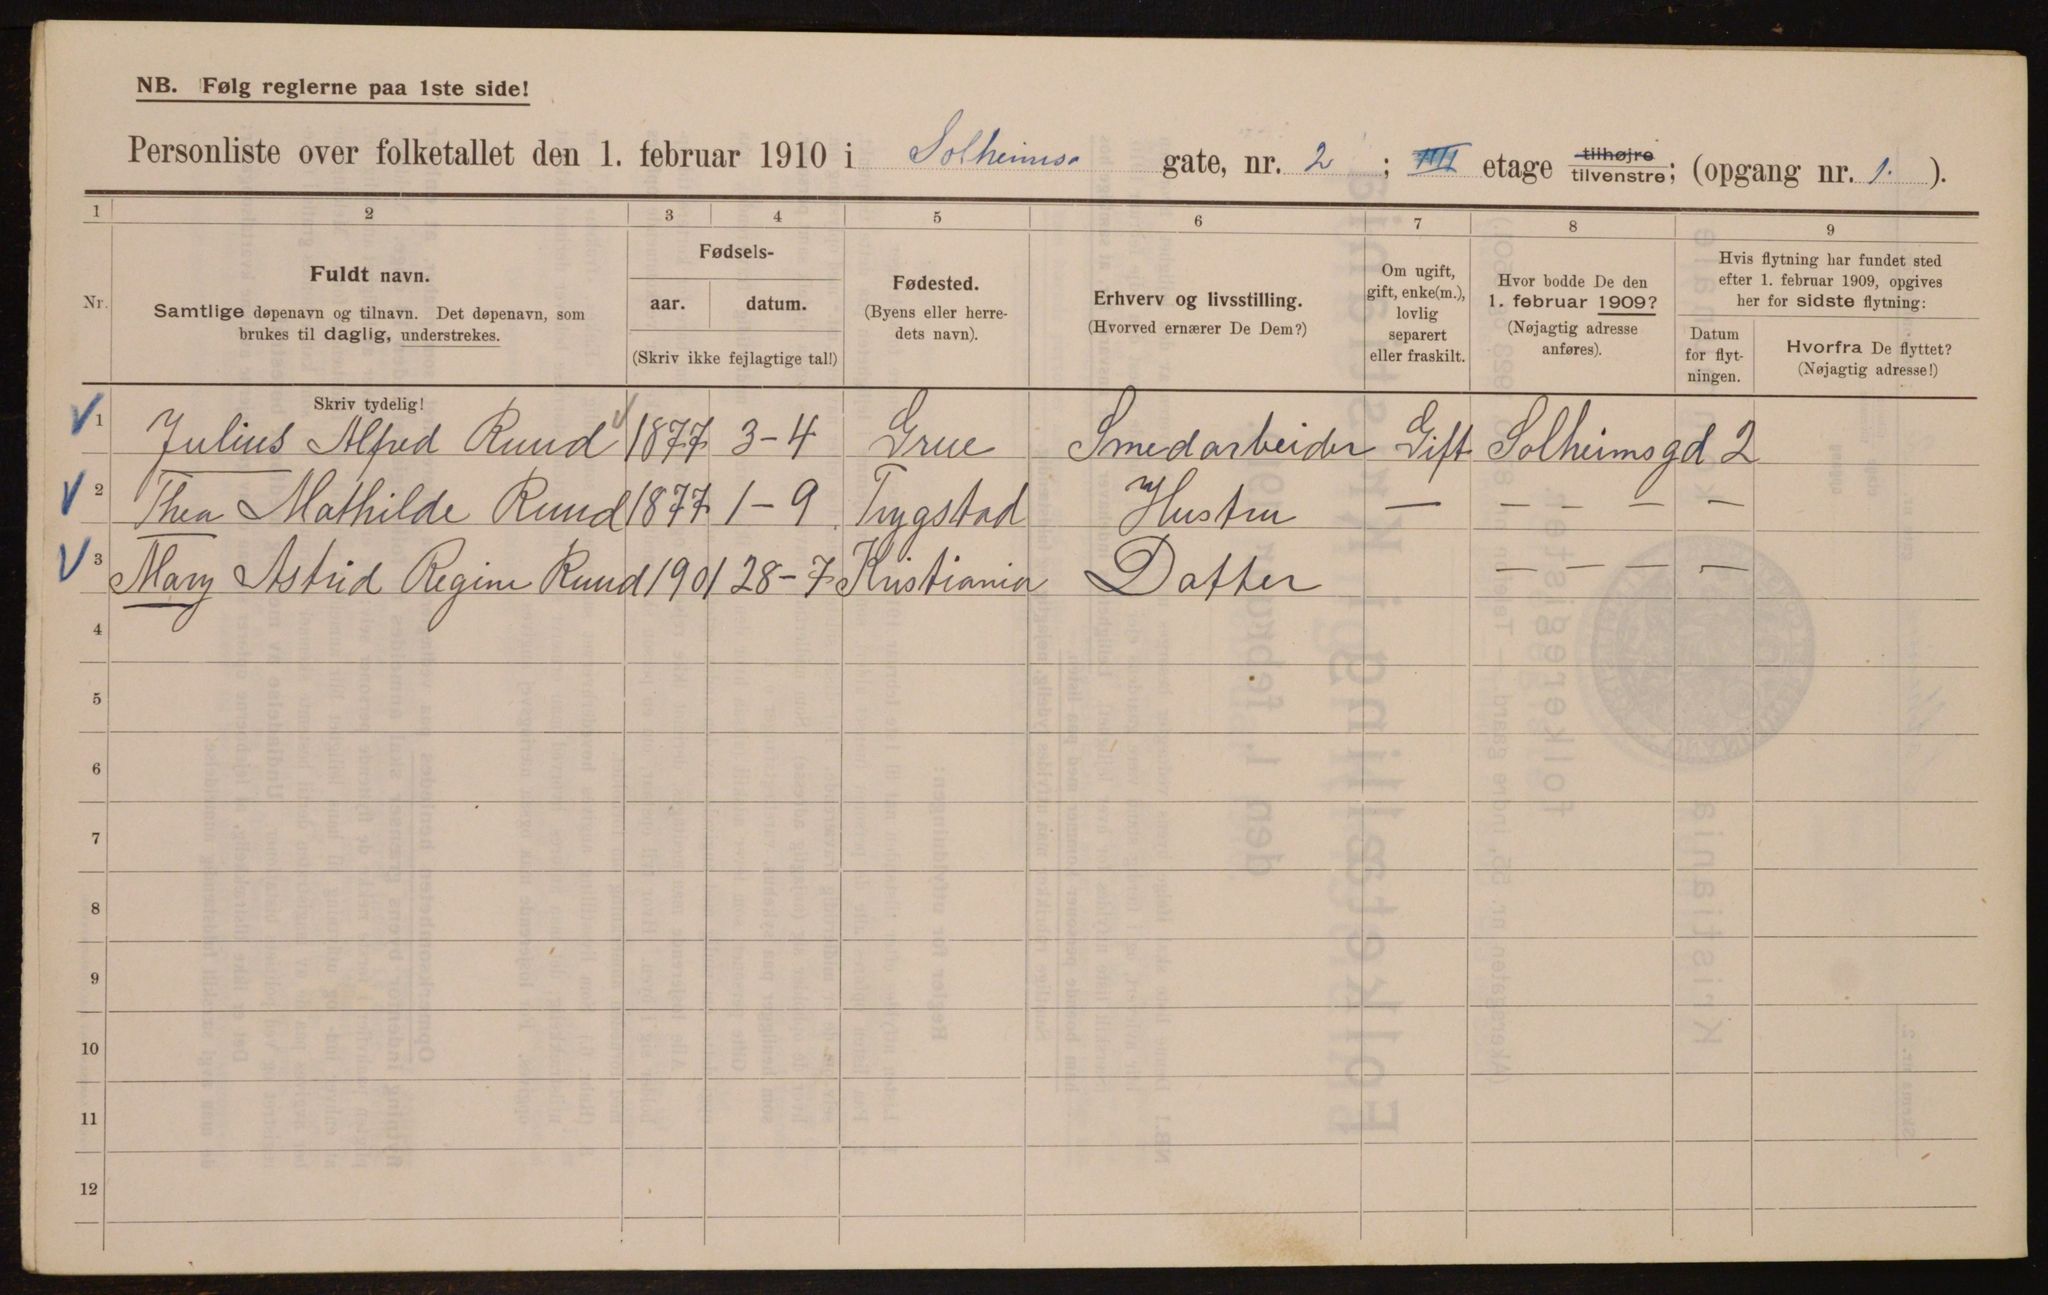 NB. Følg reglerne paa 1ste side!
Personliste over folketallet den 1. februar 1910 i Solheims gate, nr. 2 ; III etage tilhøjre tilvenstre; (opgang nr. 1. ).
1 2 3 4 5 6 7 8 9
Nr.
Fuldt navn.
Samtlige døpenavn og tilnavn. Det døpenavn, som
brukes til daglig, understrekes.
Fødsels-
aar. datum.
(Skriv ikke fejlagtige tal!)
Fødested.
(Byens eller herre-
dets navn).
Erhverv og livsstilling.
(Hvorved ernærer De Dem?)
Om ugift,
gift, enke(m.),
lovlig
separert
eller fraskilt.
Hvor bodde De den
1. februar 1909?
(Nøjagtig adresse
anføres).
Hvis flytning har fundet sted
efter 1. februar 1909, opgives
her for sidste flytning:
Datum
for flyt-
ningen.
Hvorfra De flyttet?
(Nøjagtig adresse!)
Skriv tydelig!
1 Julius Alfred Ruud 1877 3-4 Grue Smedarbeider Gift Solheimsgd 2
2 Thea Mathilde Ruud 1877 1-9 Trygstad Hustru — — — — —
3 Mary Astrid Regine Ruud 1901 28-7 Kristiania Datter — — — —
4
5
6
7
8
9
10
11
12